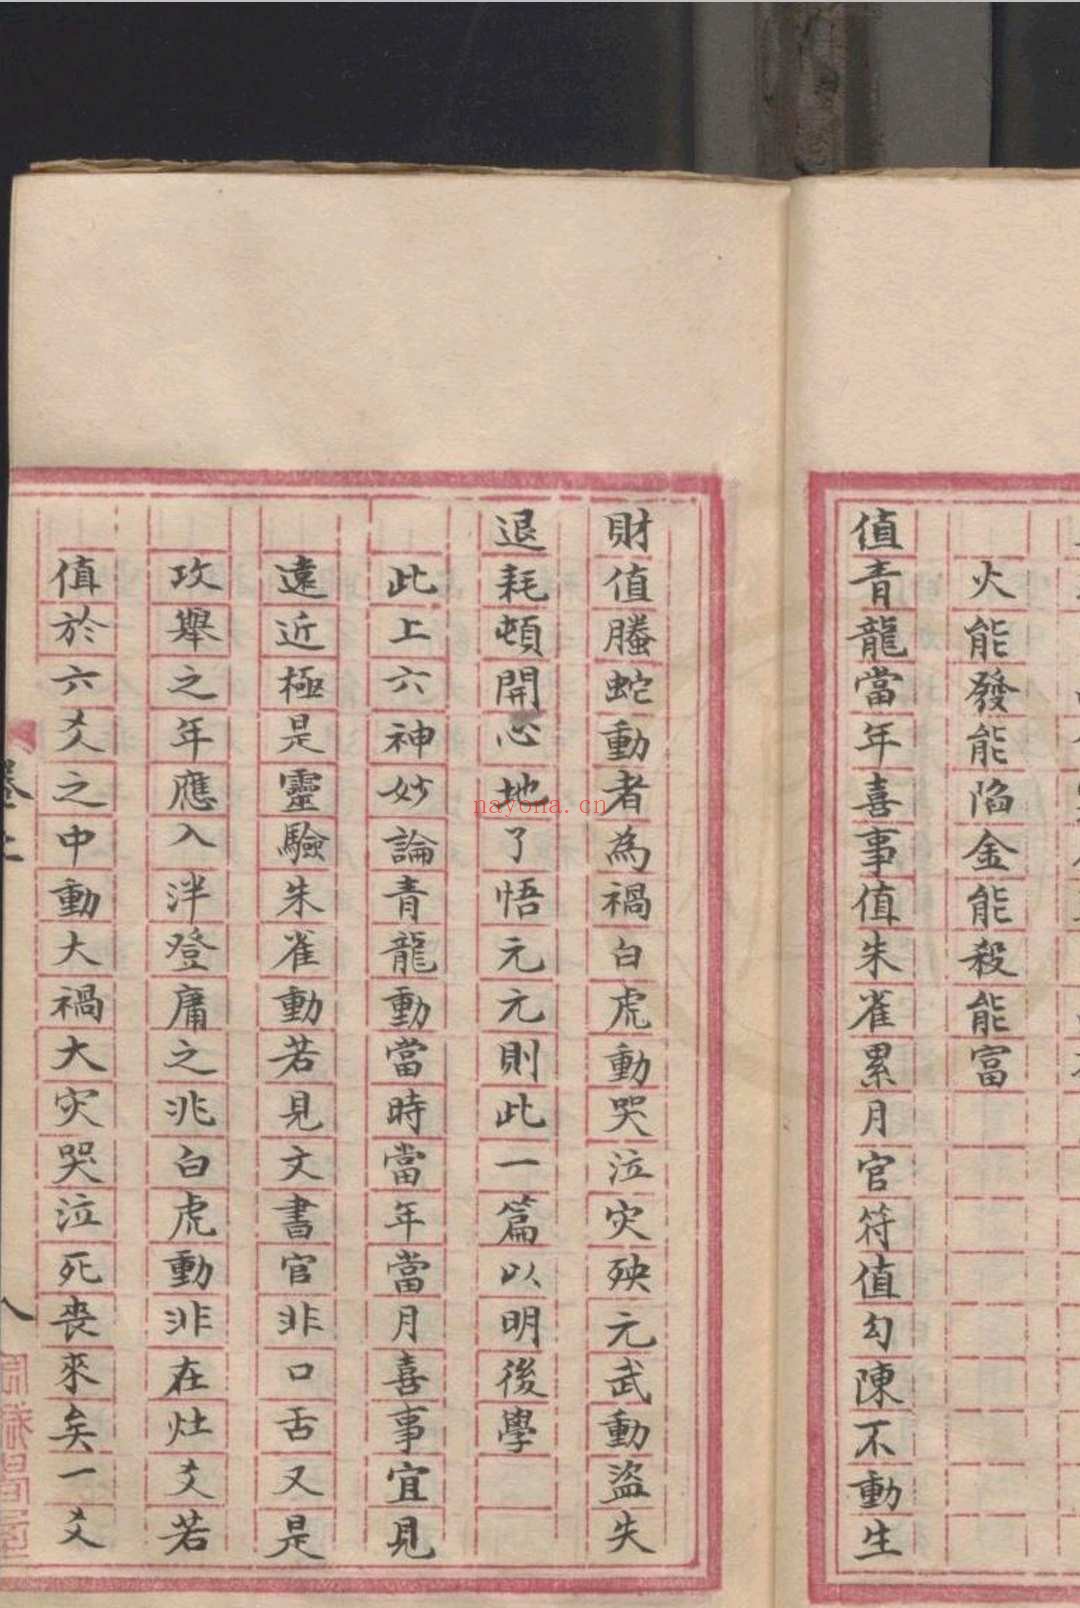 火能發能陷金能殺能富
值青龍當年喜事值朱雀累月官符值勾陳不動生
財值螣蛇動者為禍白虎動哭泣灾殃元武動盜失
退耗頓開心地了悟元元則此一篇以明後學
此上六神妙論青龍動當時當年當月喜事宜見
遠近極是靈驗朱雀動若見文書官非口舌又是
攻舉之年應入泮登庸之兆白虎動非在灶爻若
值於六爻之中動大禍大灾哭泣死喪來矣一爻
nayona.cn